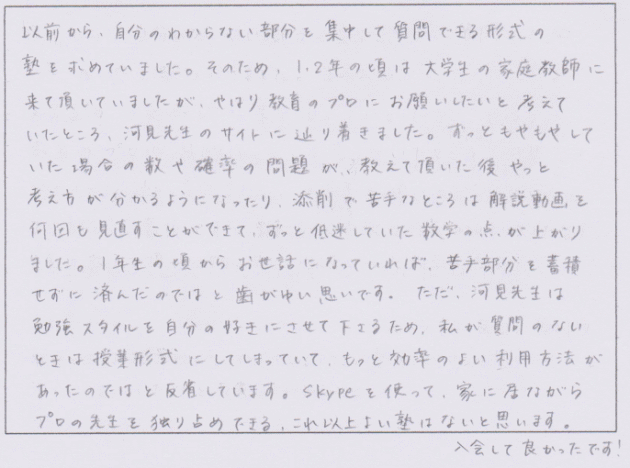 以前から、自分のわからない部分を集中して質問できる形式の
塾を求めていました。そのため、1・2年の頃は大学生の家庭教師に
来て頂いていましたが、やはり教育のプロにお願いしたいと考えて
いたところ、河見先生のサイトに辿り着きました。ずっともやもやして
いた場合の数や確率の問題が、教えて頂いた後やっと
考え方が分かるようになったり、添削で苦手なところは解説動画を
何回も見直すことができて、ずっと低迷していた数学の点が上がり
ました。1年生の頃からお世話になっていれば、苦手部分を蓄積
せずに済んだのではと歯がゆい思いです。ただ、河見先生は
勉強スタイルを自分の好きにさせて下さるため、私が質問のない
ときは授業形式にしてしまっていて、もっと効率のよい利用方法が
あったのではと反省しています。Skypeを使って、家に居ながら
プロの先生を独り占めできる、これ以上よい塾はないと思います。
入会して良かったです!